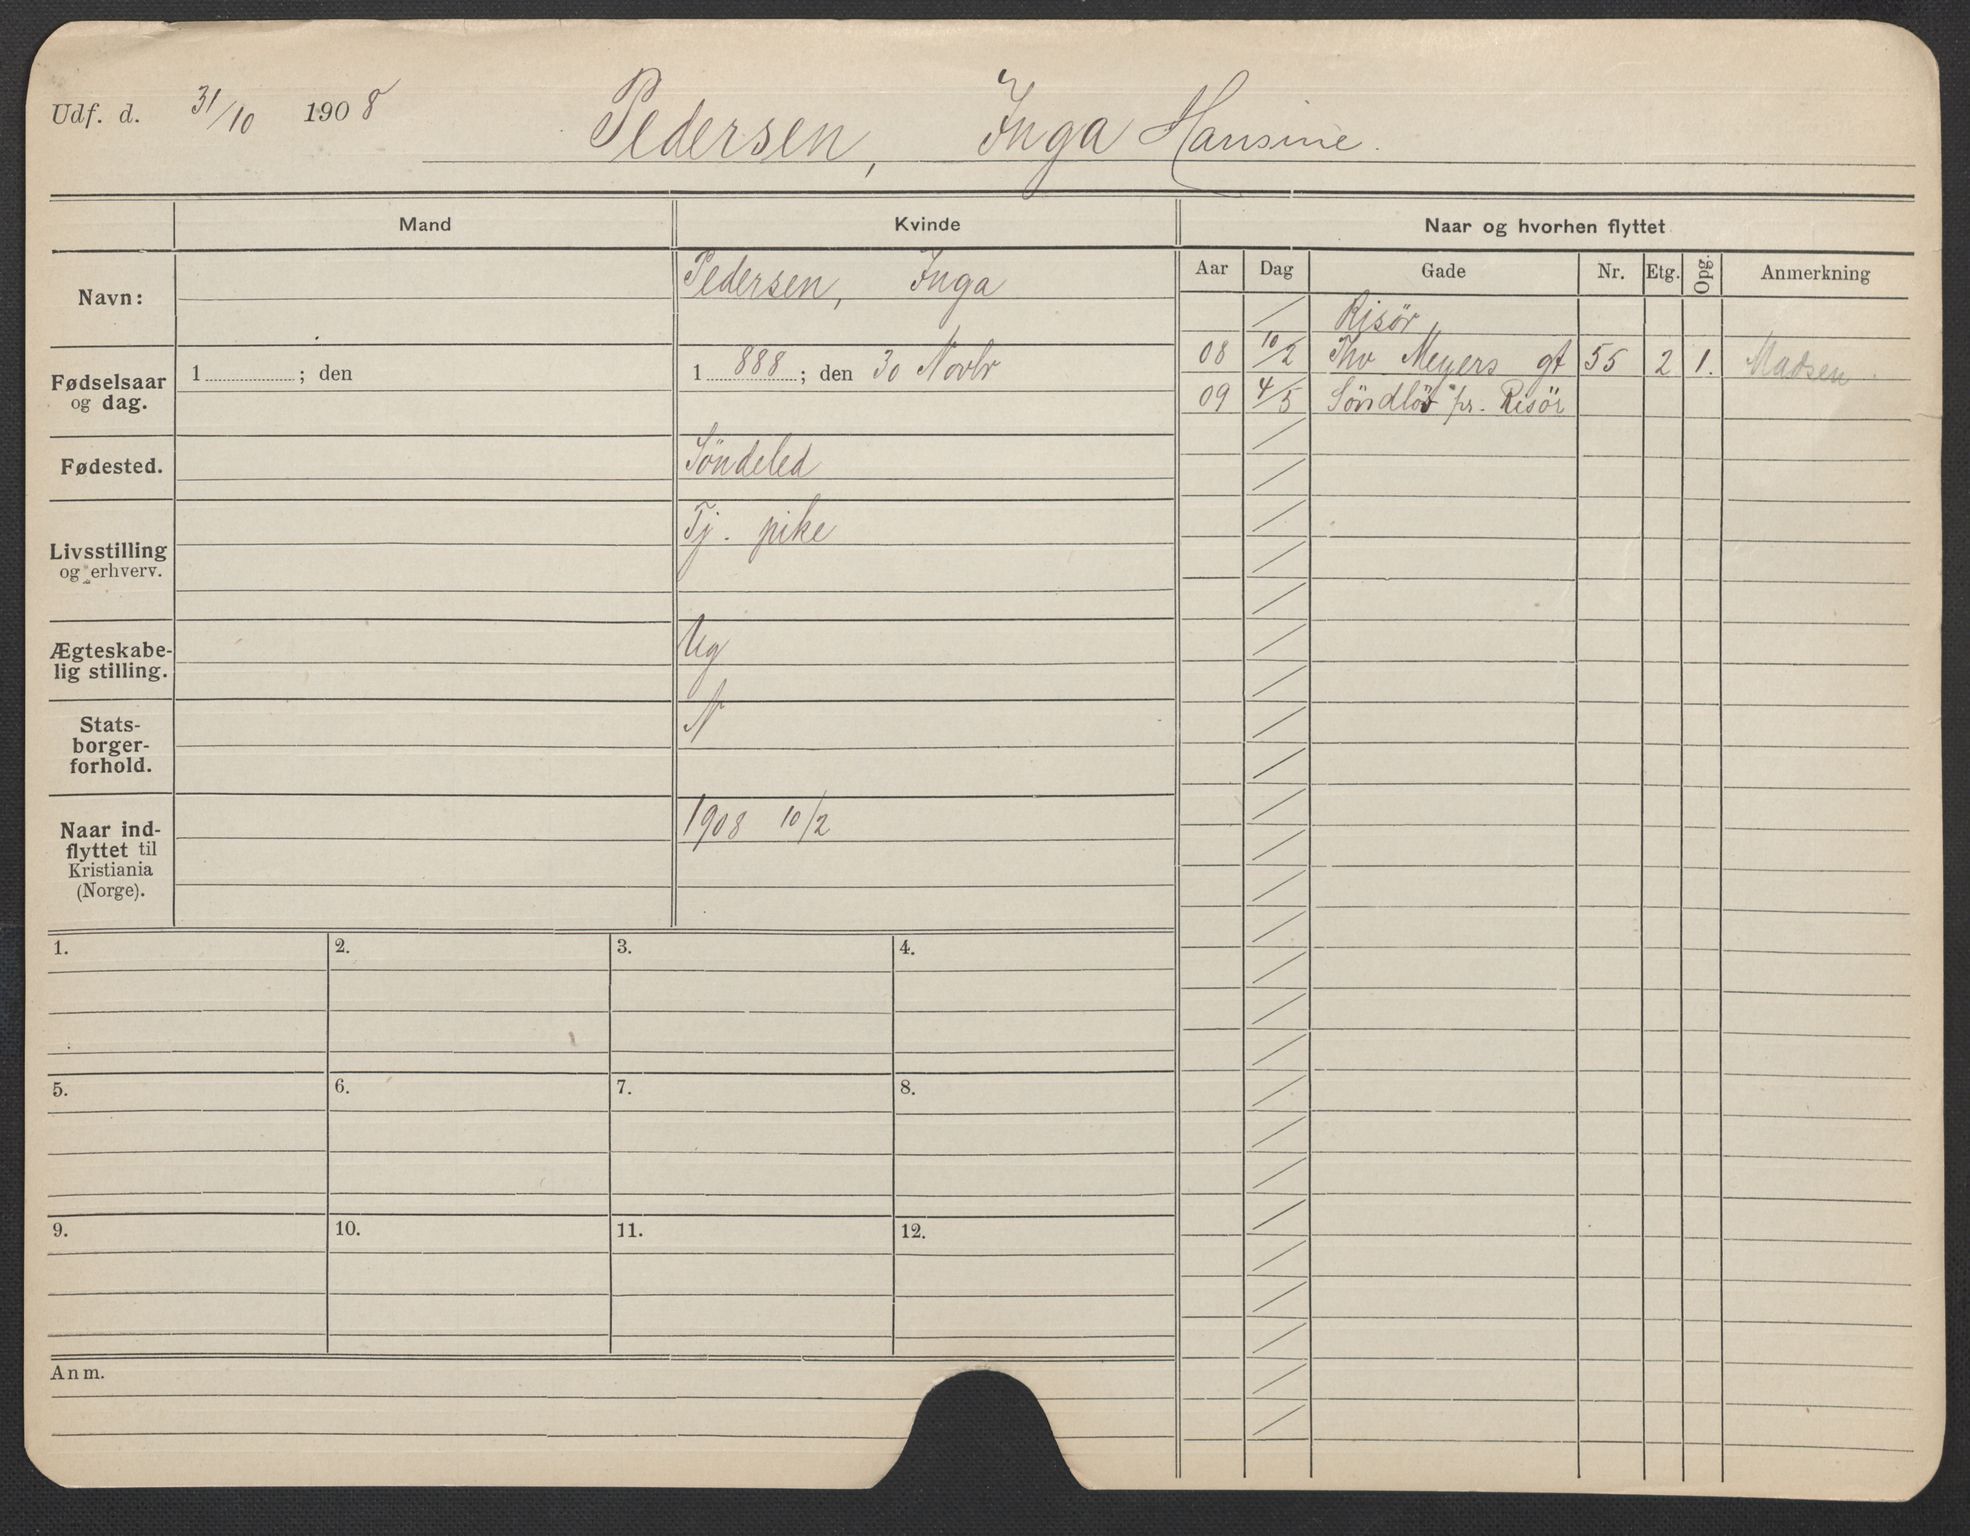 Udf. d. 31/10 1908 Pedersen, Inga Hansine.
Mand Kvinde Naar og hvorhen flyttet
Navn: Pedersen, Inga
Aar Dag Gade Nr. Etg. Opg. Anmerkning
Risör
08 10/2 Thv Meyers gt 55 2 1. Madsen
09 4/5 Söndlöv pr. Risör
Fødselsaar
og dag.
1 ; den
1 888 ; den 30 Novbr
Fødested. Söndeled
Livsstilling
og erhverv.
Tj. pike
Ægteskabe-
lig stilling.
Ug
Stats-
borger-
forhold.
N
Naar ind-
flyttet til
Kristiania
(Norge).
1908 10/2
1. 2. 3. 4.
5. 6. 7. 8.
9. 10. 11. 12.
Anm.